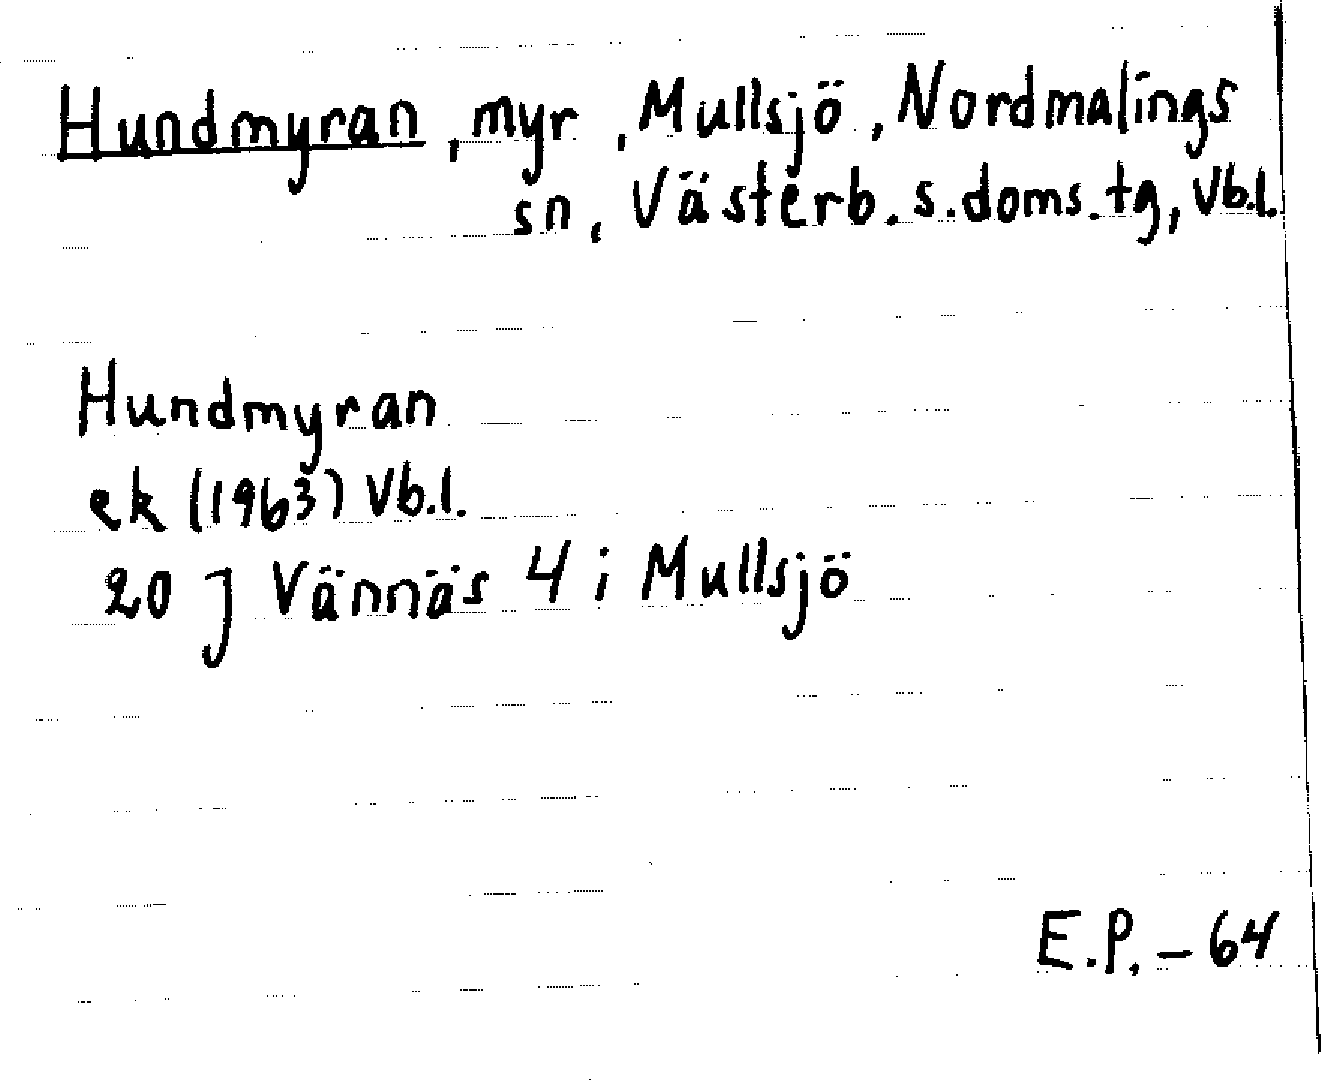 Hundmyran, myr, Mullsjö, Nordmalings
sn, Västerb. s. doms. tg, Vb.l.
Hundmyran
ek (1963) Vb.l.
20 J Vännäs 4 i Mullsjö
E.P. – 64